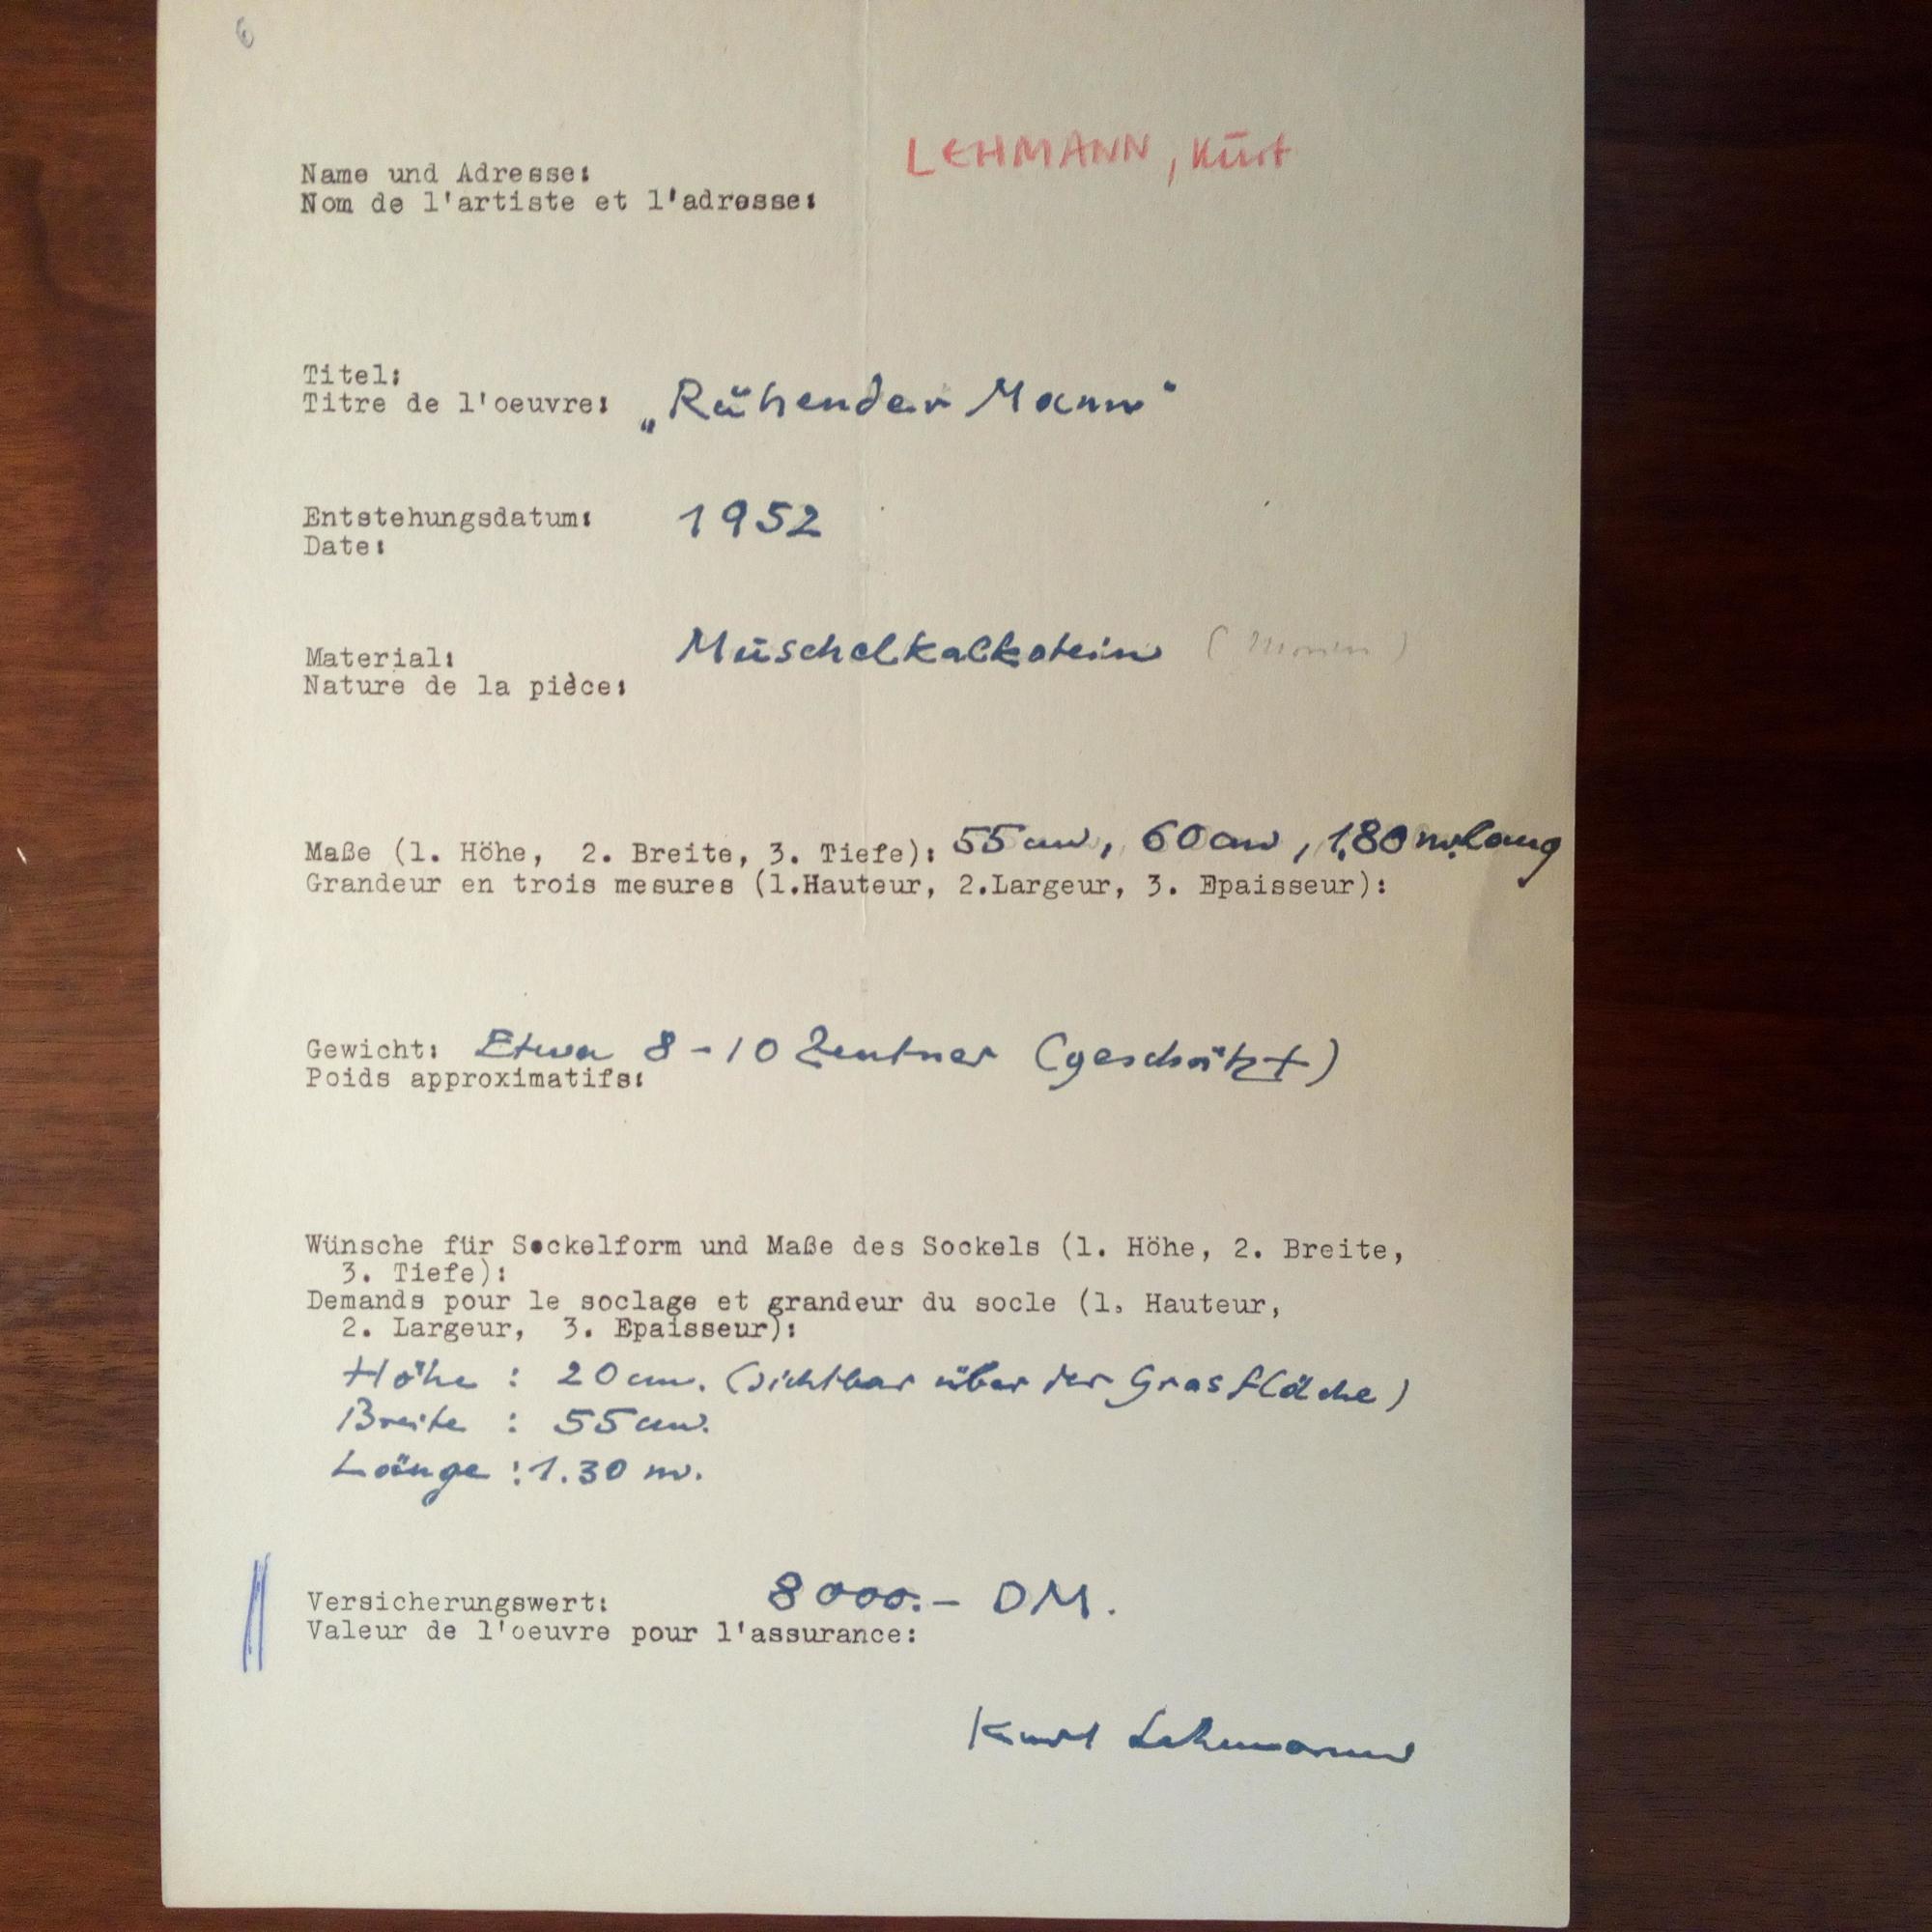 6
LEHMANN, Kurt
Name und Adresse:
Nom de l'artiste et l'adresse:
Titel:
Titre de l'oeuvre: „Ruhender Mann"
Entstehungsdatum: 1952
Date:
Material: Muschelkalkstein
Nature de la pièce:
Maße (1. Höhe, 2. Breite, 3. Tiefe): 55 cm, 60 cm, 1,80 m. lang
Grandeur en trois mesures (1.Hauteur, 2.Largeur, 3. Epaisseur):
Gewicht: Etwa 8-10 Zentner (geschätzt)
Poids approximatifs:
Wünsche für Sockelform und Maße des Sockels (1. Höhe, 2. Breite,
3. Tiefe):
Demands pour le soclage et grandeur du socle (1. Hauteur,
2. Largeur, 3. Epaisseur):
Höhe : 20 cm. (sichtbar über der Grasfläche)
Breite : 55 cm.
Länge : 1.30 m.
Versicherungswert: 8000.- DM.
Valeur de l'oeuvre pour l'assurance:
Kurt Lehmann